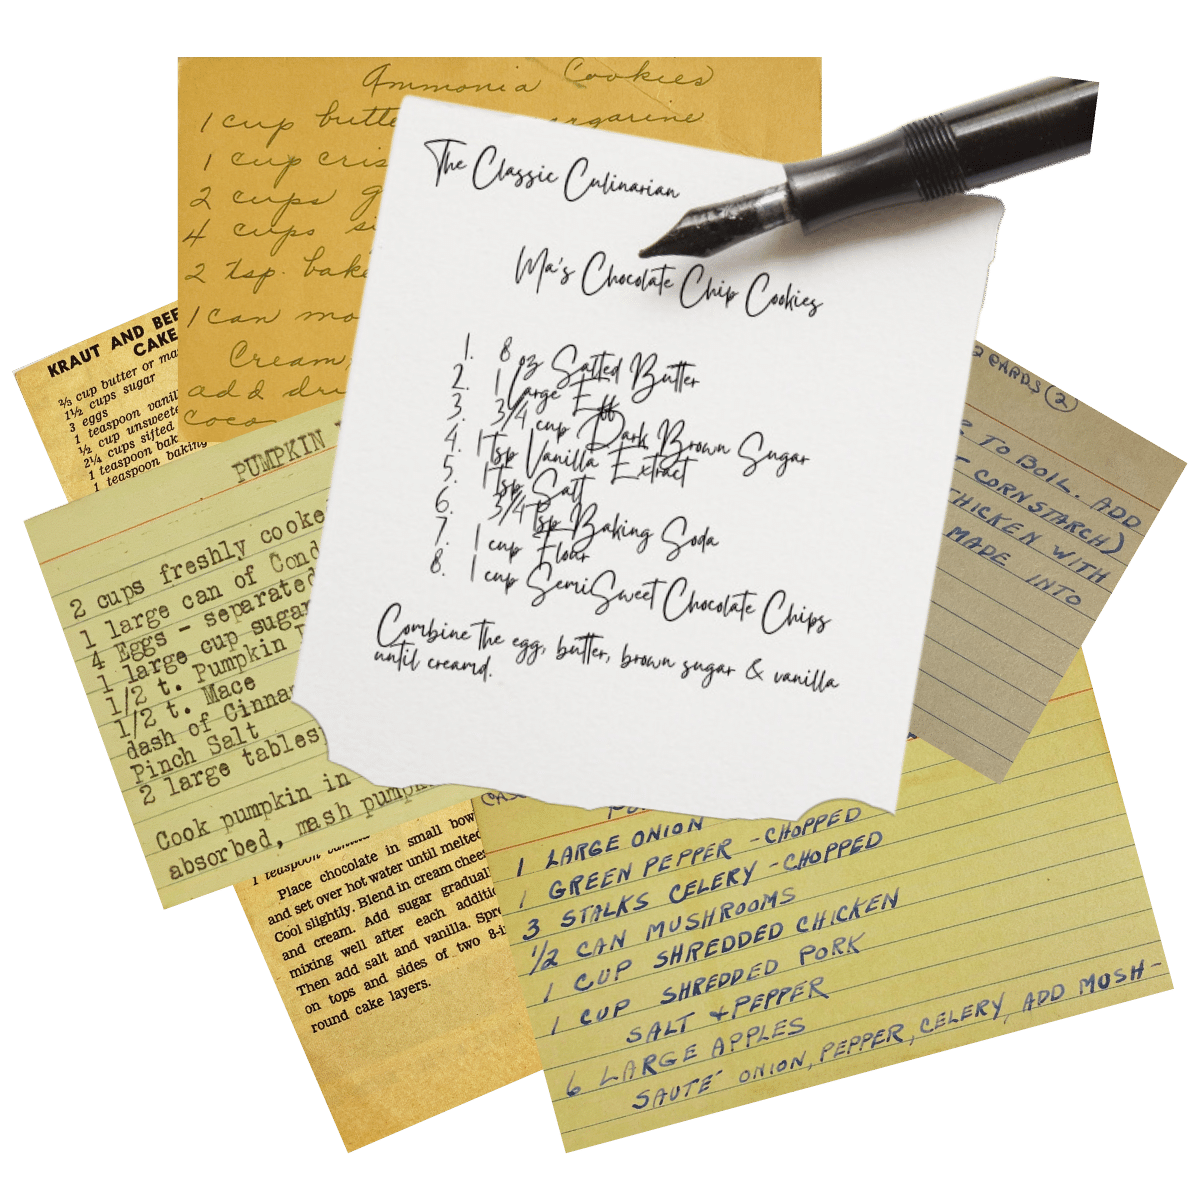 Ammonia Cookies
1 cup butte argarine
1 cup cris
2 cups g
4 cups si
2 tsp. bake
1 can mo
Cream,
add dri
Coco
KRAUT AND BEE
CAKE
⅔ cup butter or ma
1½ cups sugar
3 eggs
1 teaspoon vanil
½ cup unsweete
2¼ cups sifted
1 teaspoon bak
1 teaspoon baking
The Classic Culinarian
Ma's Chocolate Chip Cookies
1. 8 oz Salted Butter
2. 1 Large Egg
3. 3/4 cup Dark Brown Sugar
4. 1 tsp Vanilla Extract
5. 1 tsp Salt
6. 3/4 tsp Baking Soda
7. 1 cup Flour
8. 1 cup SemiSweet Chocolate Chips
Combine the egg, butter, brown sugar & vanilla
until creamd.
CARDS (2)
TO BOIL. ADD
CORNSTARCH)
HICKEN WITH
MADE INTO
PUMPKIN
2 cups freshly cooke
1 large can of Cond
4 Eggs - separated
1 large cup sugar
1/2 t. Pumpkin
1/2 t. Mace
dash of Cinna
Pinch Salt
2 large tables
Cook pumpkin in
absorbed, mash pumpk
1 teaspoon
Place chocolate in small bow
and set over hot water until melted
Cool slightly. Blend in cream chees
and cream. Add sugar graduall
mixing well after each additio
Then add salt and vanilla. Spre
on tops and sides of two 8-i
round cake layers.
1 LARGE ONION
1 GREEN PEPPER - CHOPPED
3 STALKS CELERY - CHOPPED
1/2 CAN MUSHROOMS
1 CUP SHREDDED CHICKEN
1 CUP SHREDDED PORK
SALT + PEPPER
6 LARGE APPLES
SAUTE' ONION, PEPPER, CELERY, ADD MUSH-